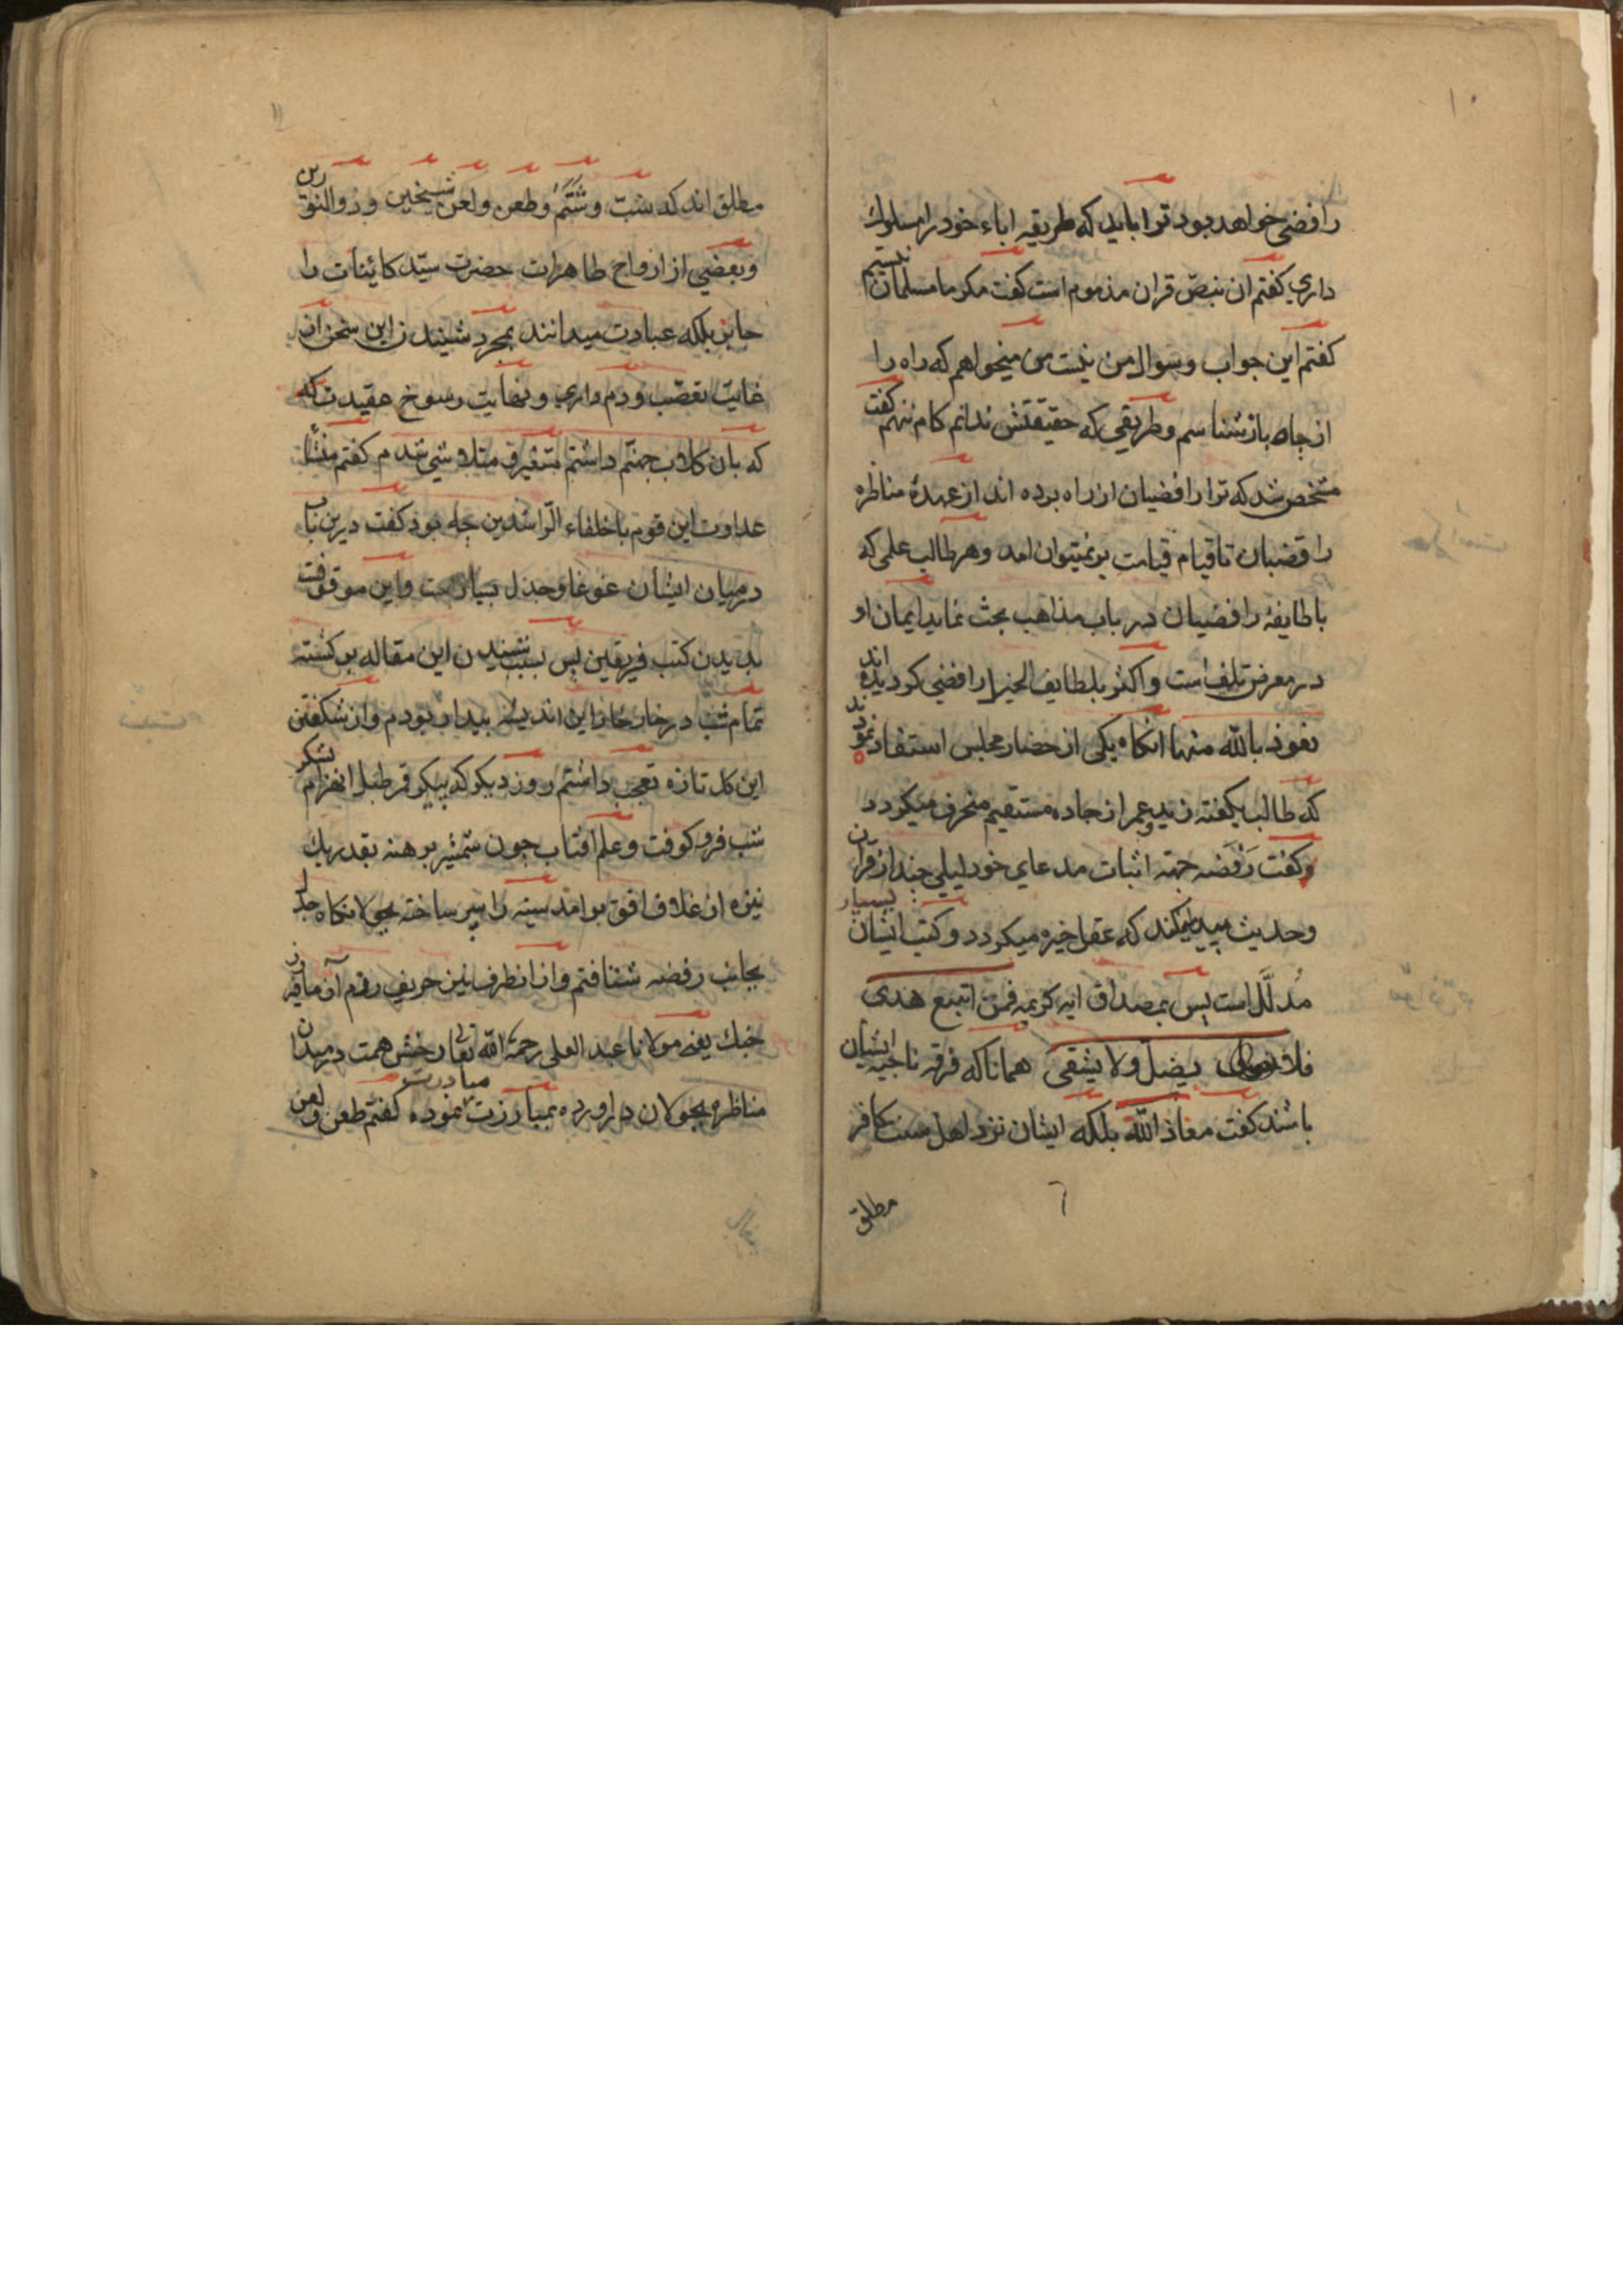 ۱۰
رافضی خواهد بود ترا باید که طریقه اباء خود را مسلوك
داری کفتم ان بنص قران مذموم است کفت مکر ما مسلمان نیستیم
کفتم این جواب و سوال من نیست من میخواهم که راه را
از چاه باز شناسم و طریقی که حقیقتش ندانم کام ننهم کفت
مشخص شد که ترا رافضیان از راه برده اند از عهدهٔ مناظره
رافضیان تا قیام قیامت بر نمیتوان امد و هر طالب علمی که
با طایفهٔ رافضیان در باب مذاهب بحث نماید ایمان او
در معرض تلف است و اکثر بلطایف الحیل را رافضی کردیده اند
نعوذ بالله منها انکاه یکی از حضار مجلس استفاد نمودند
که طالب بکفته زید و عمر از جاده مستقیم منحرف میکردد
وکفت رَفَضه جهته اثبات مدعای خود لیلی چند از قران
وحدیث پیدا میکند که عقل خیره میکردد و کتب ایشان بسیار
مُدلَّل است پس بمصداق ایه کریمه فمن اتبع هدی
فلا یضل ولا یشقی همانا که فرقه ناجیه ایشان
باشند کفت معاذ الله بلکه ایشان نزد اهل سنت کافر
مطلق
۱۱
مطلق اند که سَبّ و شَتْم و طعن و لعن شیخین و ذوالنورین
و بعضی از ازواح طاهرات حضرت سیّد کائنات را
جایز بلکه عبادت میدانند بمجرد شنیدن این سخن از
غایت تعصّب و دم داری و نهایت رسوخ عقیدت که
که بان کلاب جهنّم داشتم متغیر و متلاشی شدم کفتم منشأ
عداوت این قوم با خلفاء الراشدین چه بود کفت درین باب
در میان ایشان غوغا و جدل بسیار است و این موقوفست
بدیدن کتب فریقین پس بسبب شنیدن این مقاله بر کشته
تمام شب در خار خار این اندیشه بیدار بودم و از شکفتن
این کل تازه تعجب داشتم روز دیکر که پیکر قمر طبل انهزام لشکر
شب فرو کوفت و علم آفتاب چون شمشیر برهنه بقدر یك
نیزه از غلاف افق بر امد سینه را سپر ساخته بجولانکاه
بجانب رفضه شتافتم و از انطرف نیز حریف رزم آزمای
جنك یعنی مولانا عبد العلی رحمة الله تعالی رخش همت در میدان
مناظره بجولان در اورده بمبارزت مبادرت نموده کفتم طعن و لعن